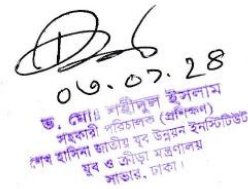 ০৬.০১.২৪
ড. মোঃ শরীফুল ইসলাম
সহকারী পরিচালক (প্রশিক্ষণ)
শেখ হাসিনা জাতীয় যুব উন্নয়ন ইনস্টিটিউট
যুব ও ক্রীড়া মন্ত্রণালয়
সাভার, ঢাকা।